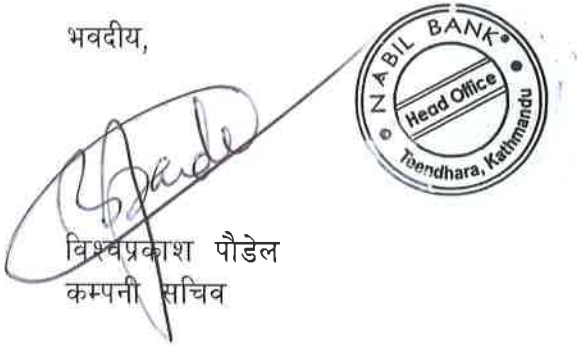 भवदीय,
NABIL BANK
Head Office
Teendhara, Kathmandu
विश्वप्रकाश पौडेल
कम्पनी सचिव